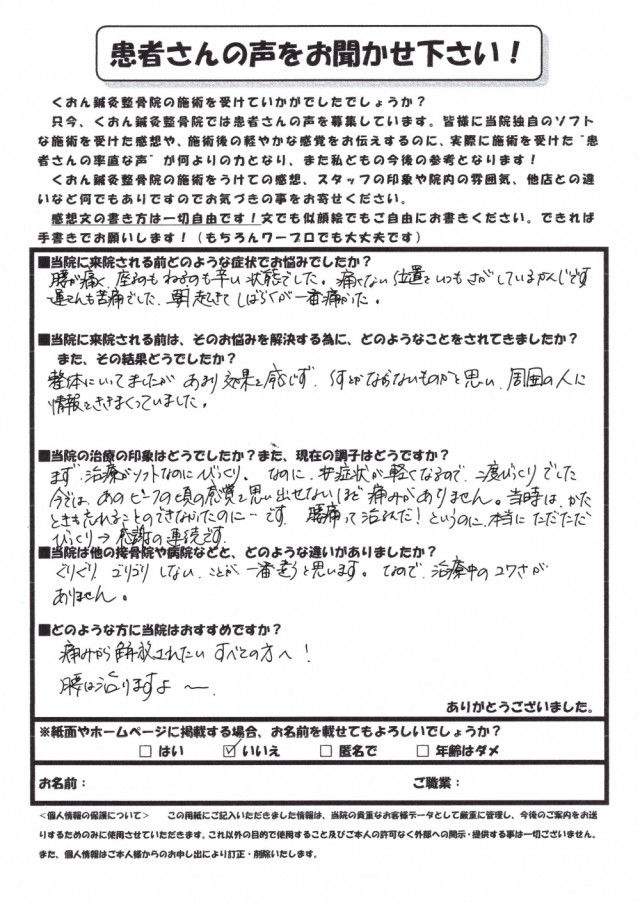 患者さんの声をお聞かせ下さい！
くおん鍼灸整骨院の施術を受けていかがでしたでしょうか？
只今、くおん鍼灸整骨院では患者さんの声を募集しています。皆様に当院独自のソフト
な施術を受けた感想や、施術後の軽やかな感覚をお伝えするのに、実際に施術を受けた“患
者さんの率直な声”が何よりの力となり、また私どもの今後の参考となります！
くおん鍼灸整骨院の施術をうけての感想、スタッフの印象や院内の雰囲気、他店との違
いなど何でもありですのでお気づきの事をお寄せください。
感想文の書き方は一切自由です！文でも似顔絵でもご自由にお書きください。できれば
手書きでお願いします！（もちろんワープロでも大丈夫です）
■当院に来院される前どのような症状でお悩みでしたか？
腰が痛く、座るのもねるのも辛い状態でした。痛くない位置をいつもさがしているかんじです
運てんも苦痛でした。朝起きてしばらくが一番痛かった。
■当院に来院される前は、そのお悩みを解決する為に、どのようなことをされてきましたか？
また、その結果どうでしたか？
整体にいてましたが あまり効果を感じず、何とかならないものかと思い、周囲の人に
情報をききまくっていました。
■当院の治療の印象はどうでしたか？また、現在の調子はどうですか？
まず、治療がソフトなのにびっくり。なのに、症状が軽くなるので、二度びっくりでした
今では、あのピークの頃の感覚を思い出せないほど痛みがありません。当時は、かた
ときも忘れることのできなかったのに…です。腰痛って治るんだ！というのに、本当にただただ
びっくり→感謝の連続です。
■当院は他の接骨院や病院などと、どのような違いがありましたか？
ぐりぐり、ゴリゴリしない、ことが一番違うと思います。なので、治療中のコワさが
ありません。
■どのような方に当院はおすすめですか？
痛みから解放されたいすべての方へ！
腰は治りますよ〜
ありがとうございました。
※紙面やホームページに掲載する場合、お名前を載せてもよろしいでしょうか？
□ はい ☑ いいえ □ 匿名で □ 年齢はダメ
お名前： ご職業：
＜個人情報の保護について＞ この用紙にご記入いただきました情報は、当院の貴重なお客様データとして厳重に管理し、今後のご案内をお送
りするためのみに使用させていただきます。これ以外の目的で使用すること及びご本人の許可なく外部への開示・提供する事は一切ございません。
また、個人情報はご本人様からのお申し出により訂正・削除いたします。